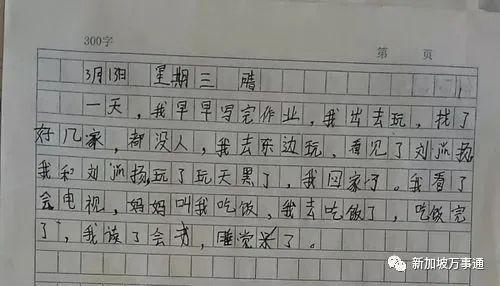 300字
第 页
3月13日 星期三 晴
一天，我早早写完作业，我出去玩，找了
好几家，都没人，我去东边玩，看见了刘洪扬
我和刘洪扬玩了玩天黑了，我回家了。我看了
会电视，妈妈叫我吃饭，我去吃饭了，吃饭完
了，我读了会书，睡觉了。
新加坡万事通